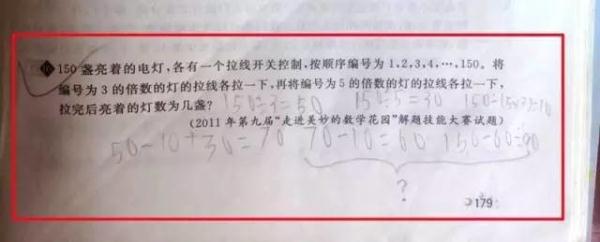 150盏亮着的电灯,各有一个拉线开关控制,按顺序编号为1,2,3,4,…,150。将
编号为3的倍数的灯的拉线各拉一下,再将编号为5的倍数的灯的拉线各拉一下,
拉完后亮着的灯数为几盏? 150÷3=50 150÷5=30 150÷(5×3)=10
(2011年第九届“走进美妙的数学花园”解题技能大赛试题)
50-10+30=70 70-10=60 150-60=90
?
179